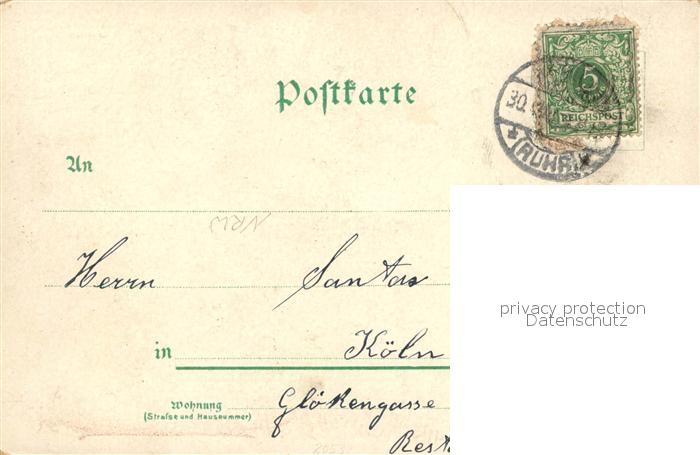 Postkarte
5
REICHSPOST
30.
(RUHR)
An
NRW
Herrn Santas
privacy protection
Datenschutz
in Köln
Wohnung
(Strafse und Hausnummer)
Glökengasse
Rest